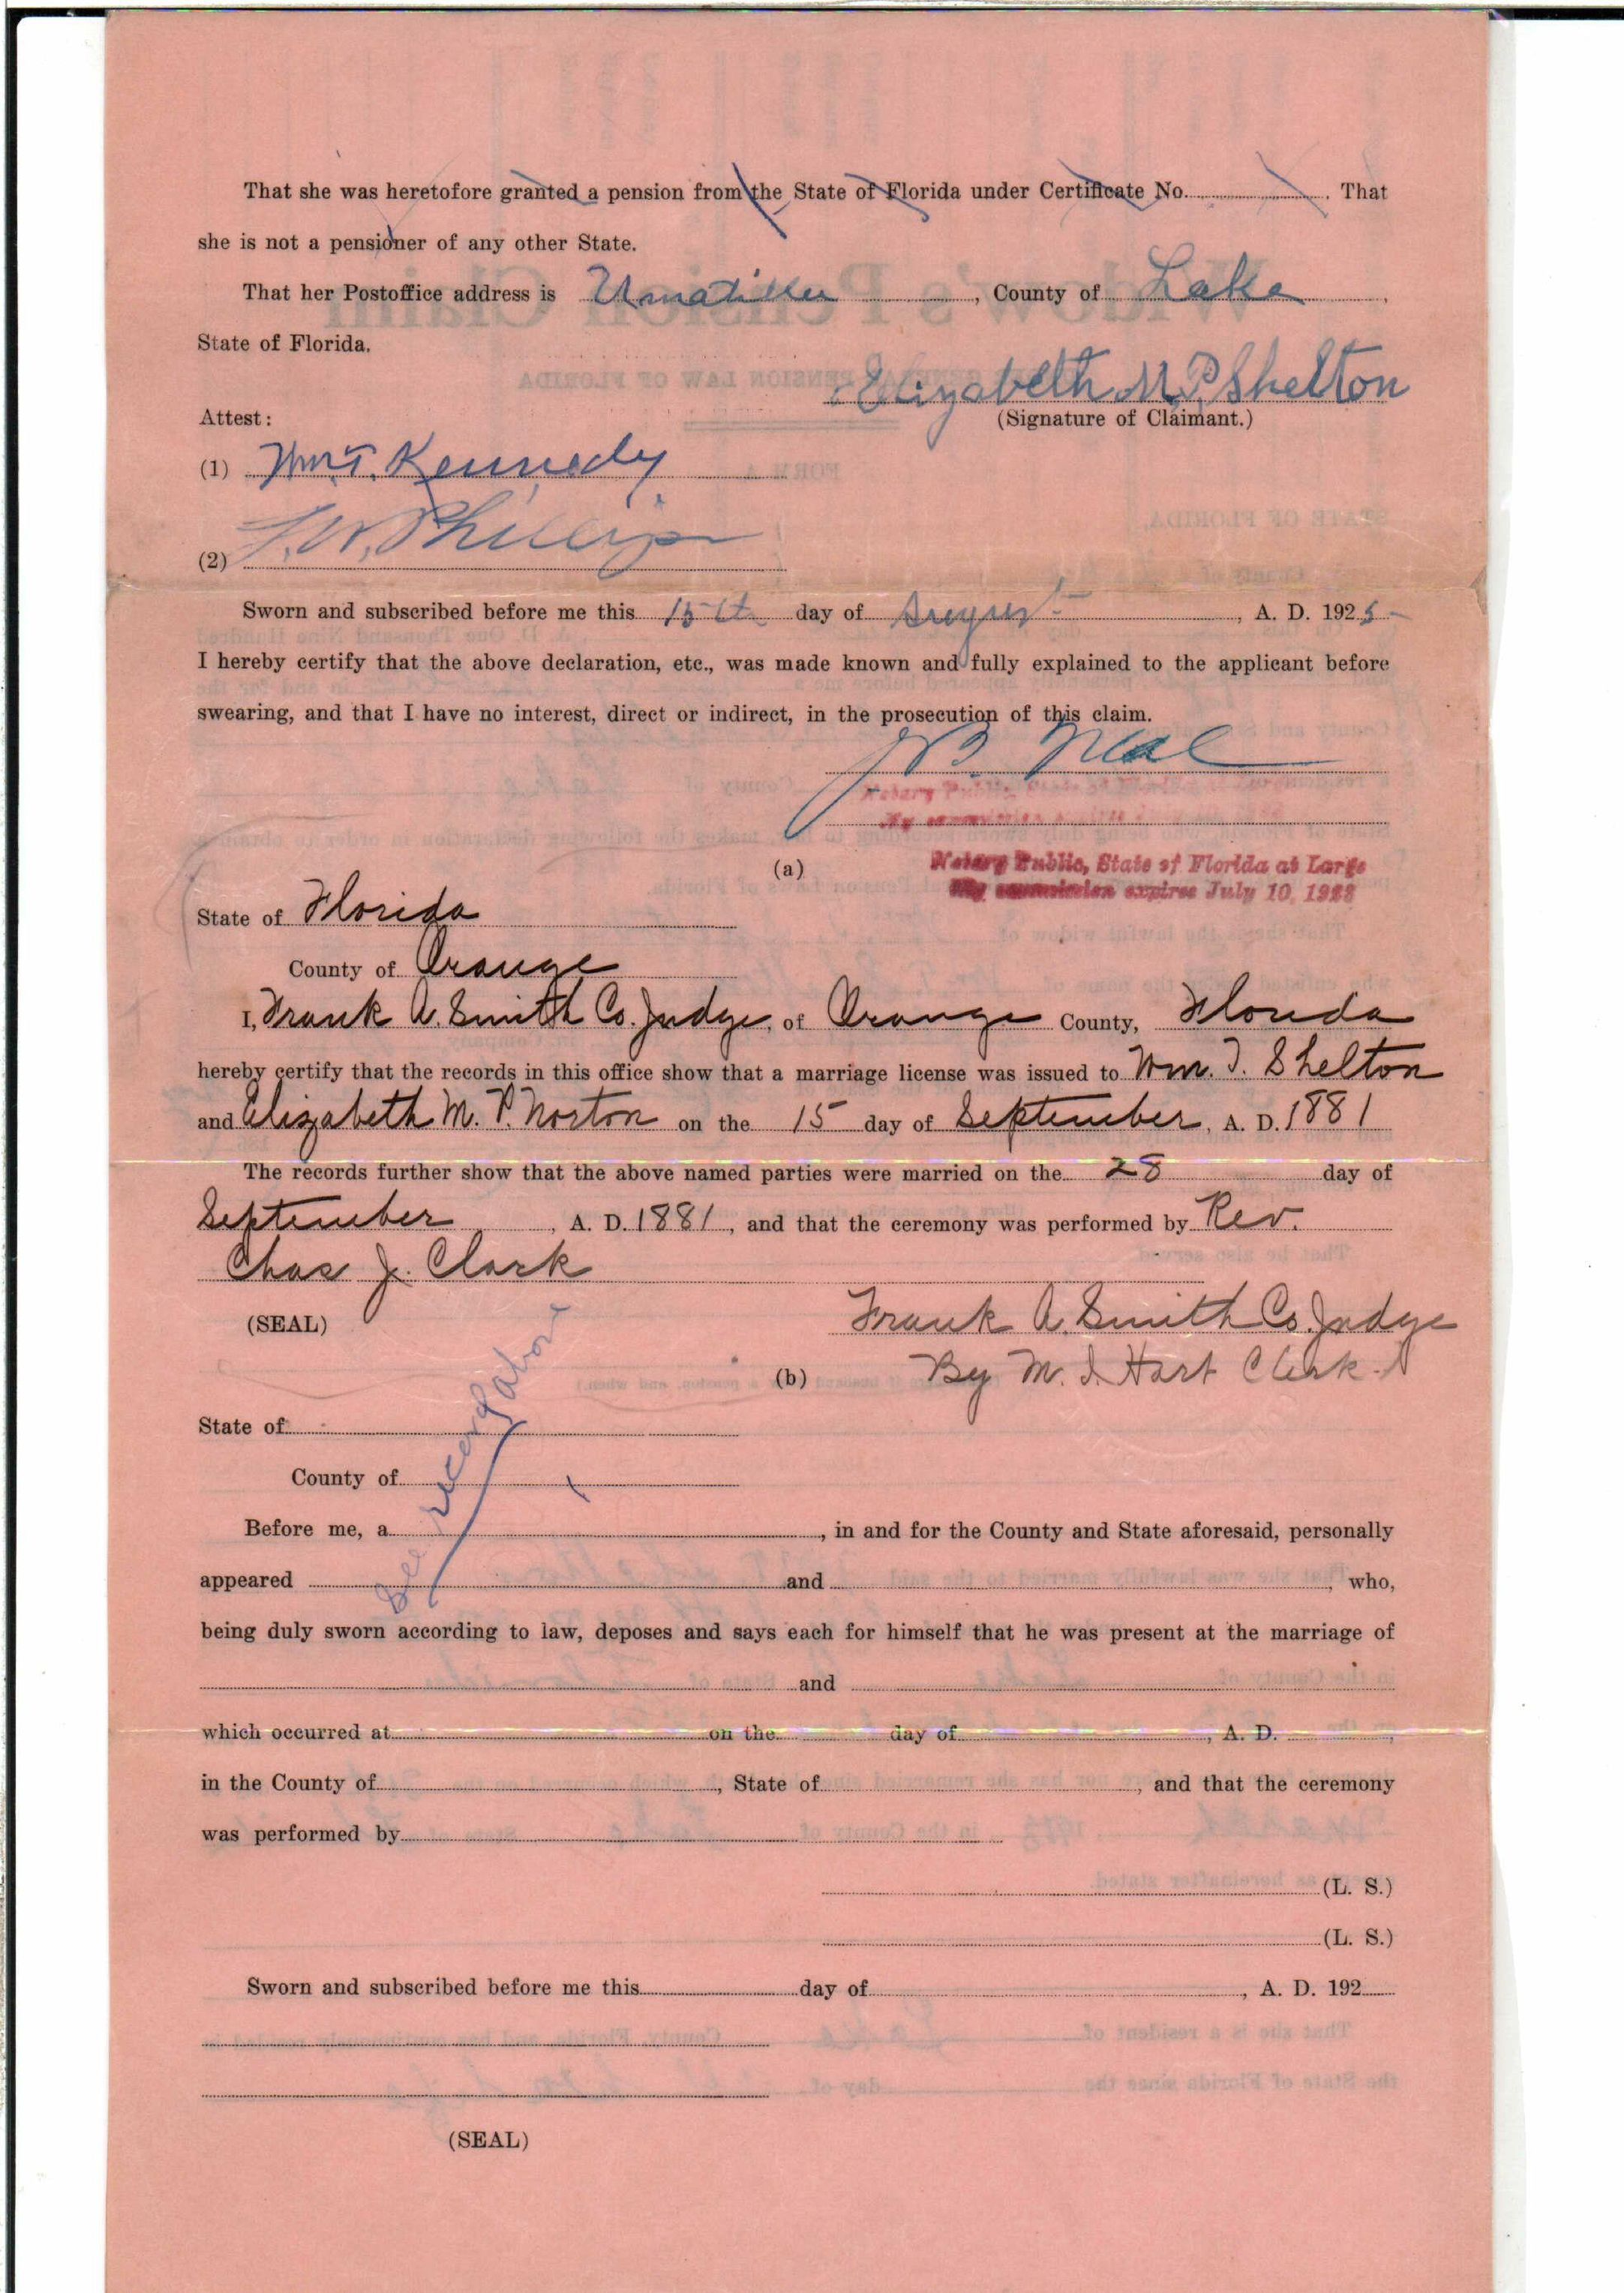 That she was heretofore granted a pension from the State of Florida under Certificate No. . That
she is not a pensioner of any other State.
That her Postoffice address is Umatilla, County of Lake,
State of Florida.
Elizabeth M. P. Shelton
Attest:
(Signature of Claimant.)
(1) Wm. T. Kennedy
(2) L. W. Phillips
Sworn and subscribed before me this 15th day of August, A. D. 1925
I hereby certify that the above declaration, etc., was made known and fully explained to the applicant before
swearing, and that I have no interest, direct or indirect, in the prosecution of this claim.
J B. Neal
Notary Public, State of Florida at Large
My commission expires
(a)
Notary Public, State of Florida at Large
My commission expires July 10, 1928
State of Florida
County of Orange
I, Frank A. Smith Co. Judge, of Orange County, Florida
hereby certify that the records in this office show that a marriage license was issued to Wm. T. Shelton
and Elizabeth M. P. Norton on the 15 day of September, A. D. 1881
The records further show that the above named parties were married on the 28 day of
September, A. D. 1881, and that the ceremony was performed by Rev.
Chas J. Clark
(SEAL)
Frank A. Smith Co. Judge
(b)
By M. I. Hart Clerk
See record above
State of
County of
Before me, a , in and for the County and State aforesaid, personally
appeared and , who,
being duly sworn according to law, deposes and says each for himself that he was present at the marriage of
and
which occurred at on the day of , A. D. ,
in the County of , State of , and that the ceremony
was performed by
(L. S.)
(L. S.)
Sworn and subscribed before me this day of , A. D. 192
(SEAL)